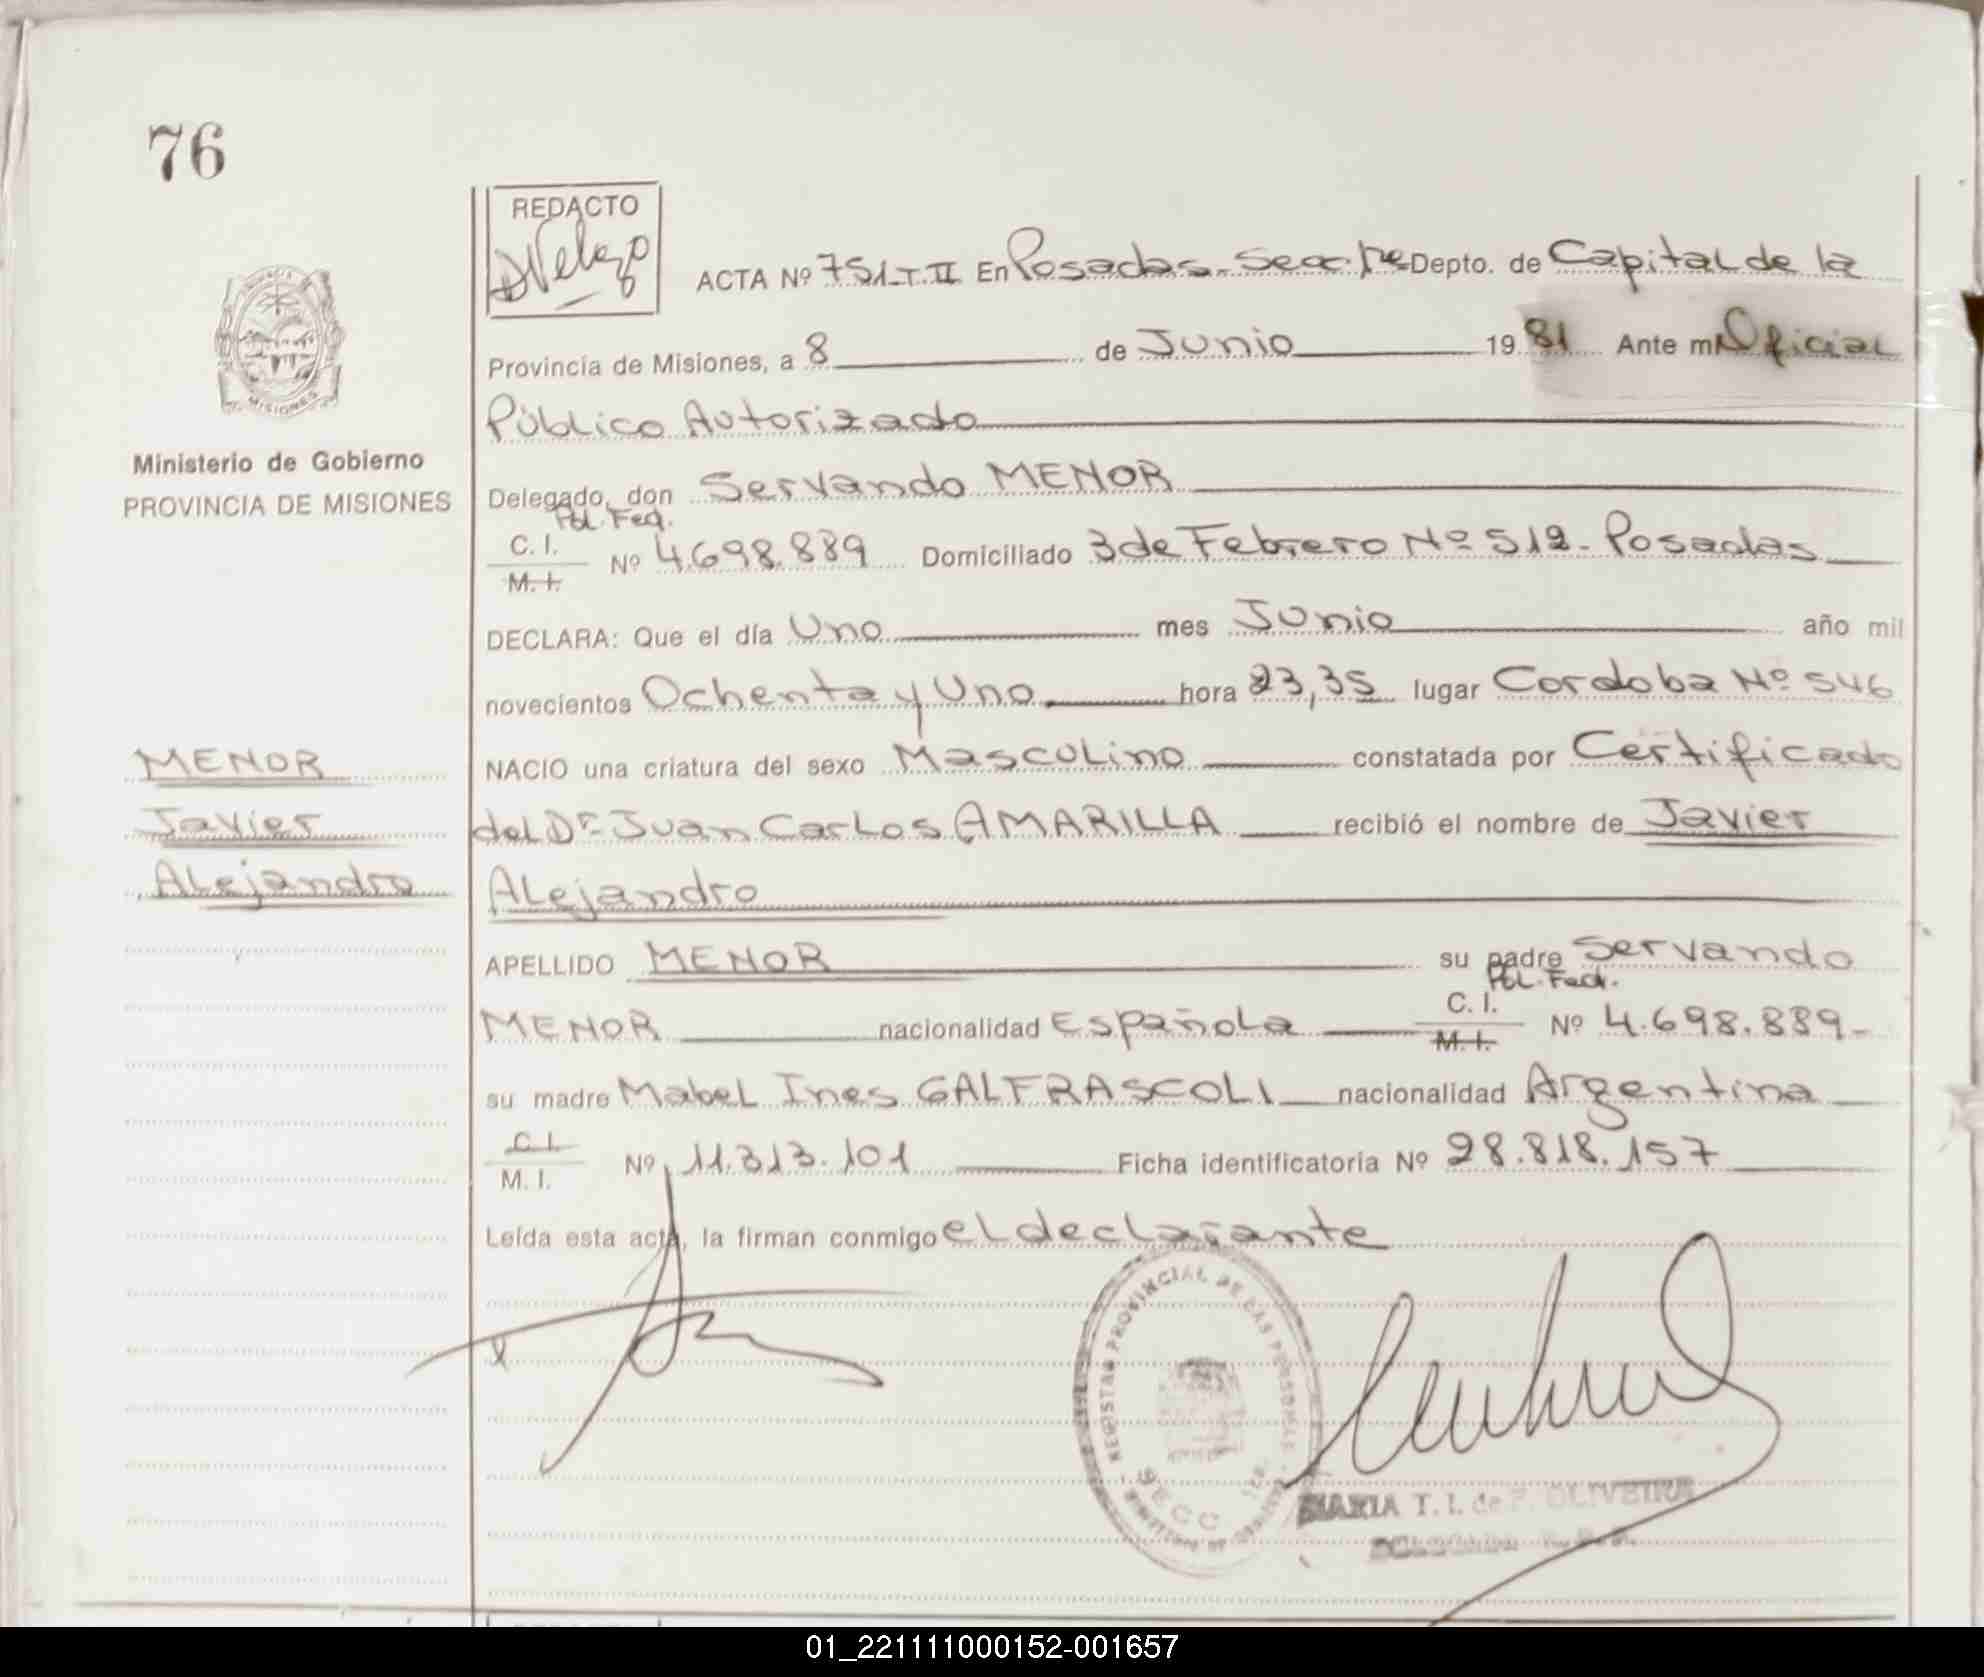 76
REDACTO
ACTA Nº 751-T-II En Posadas-Secc. 1ra Depto. de Capital de la
Provincia de Misiones, a 8 de Junio 1981 Ante mi Oficial
MISIONES
Público Autorizado
Ministerio de Gobierno
PROVINCIA DE MISIONES
Delegado, don Servando MENOR
Pol. Fed.
C. I.
M. I.
Nº 4.698.889 Domiciliado 3 de Febrero Nº 512-Posadas
DECLARA: Que el día Uno mes Junio año mil
novecientos Ochenta y Uno hora 23,35 lugar Cordoba Nº 546
MENOR
NACIO una criatura del sexo Masculino constatada por Certificado
Javier
del Dr. Juan Carlos AMARILLA recibió el nombre de Javier
Alejandro
Alejandro
APELLIDO MENOR su padre Servando
Pol. Fed.
MENOR nacionalidad Española C. I. M. I. Nº 4.698.889-
su madre Mabel Ines GALFRASCOLI nacionalidad Argentina
C. I.
M. I.
Nº 11.313.101 Ficha identificatoria Nº 28.818.157
Leída esta acta, la firman conmigo el declarante
REGISTRO PROVINCIAL DE LAS PERSONAS
SECC. 1ra.
MARIA T. I. de F. OLIVEIRA
01_221111000152-001657